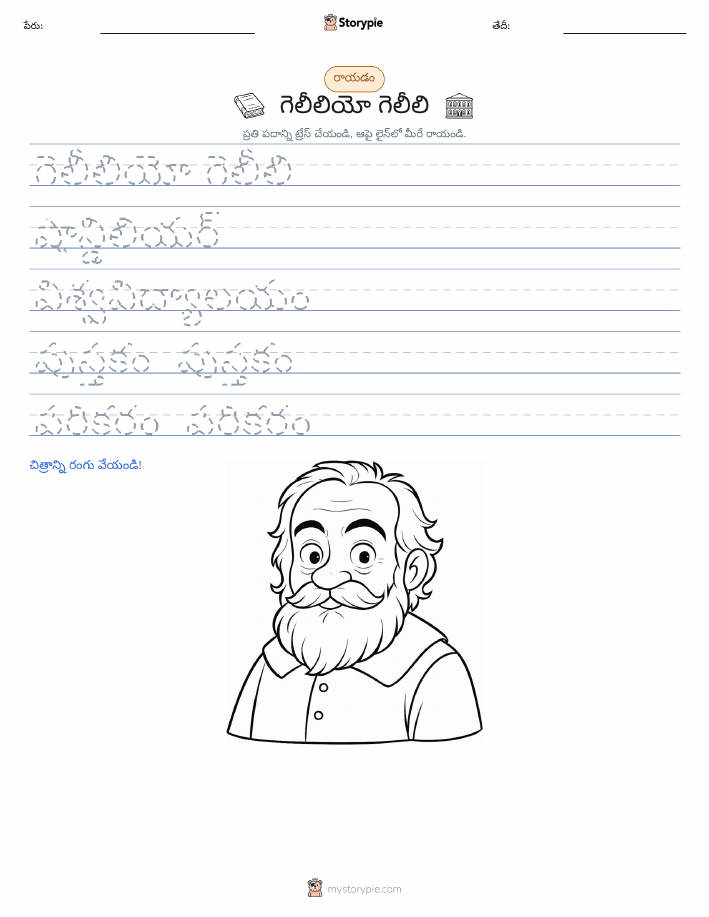 పేరు:
Storypie
తేదీ:
రాయడం
గెలీలియో గెలీలి
ప్రతి పదాన్ని ట్రేస్ చేయండి, ఆపై లైన్‌లో మీరే రాయండి.
గెలీలియో గెలీలి
విశ్వవిద్యాలయం
పుస్తకం పుస్తకం
పరికరం పరికరం
చిత్రాన్ని రంగు వేయండి!
mystorypie.com